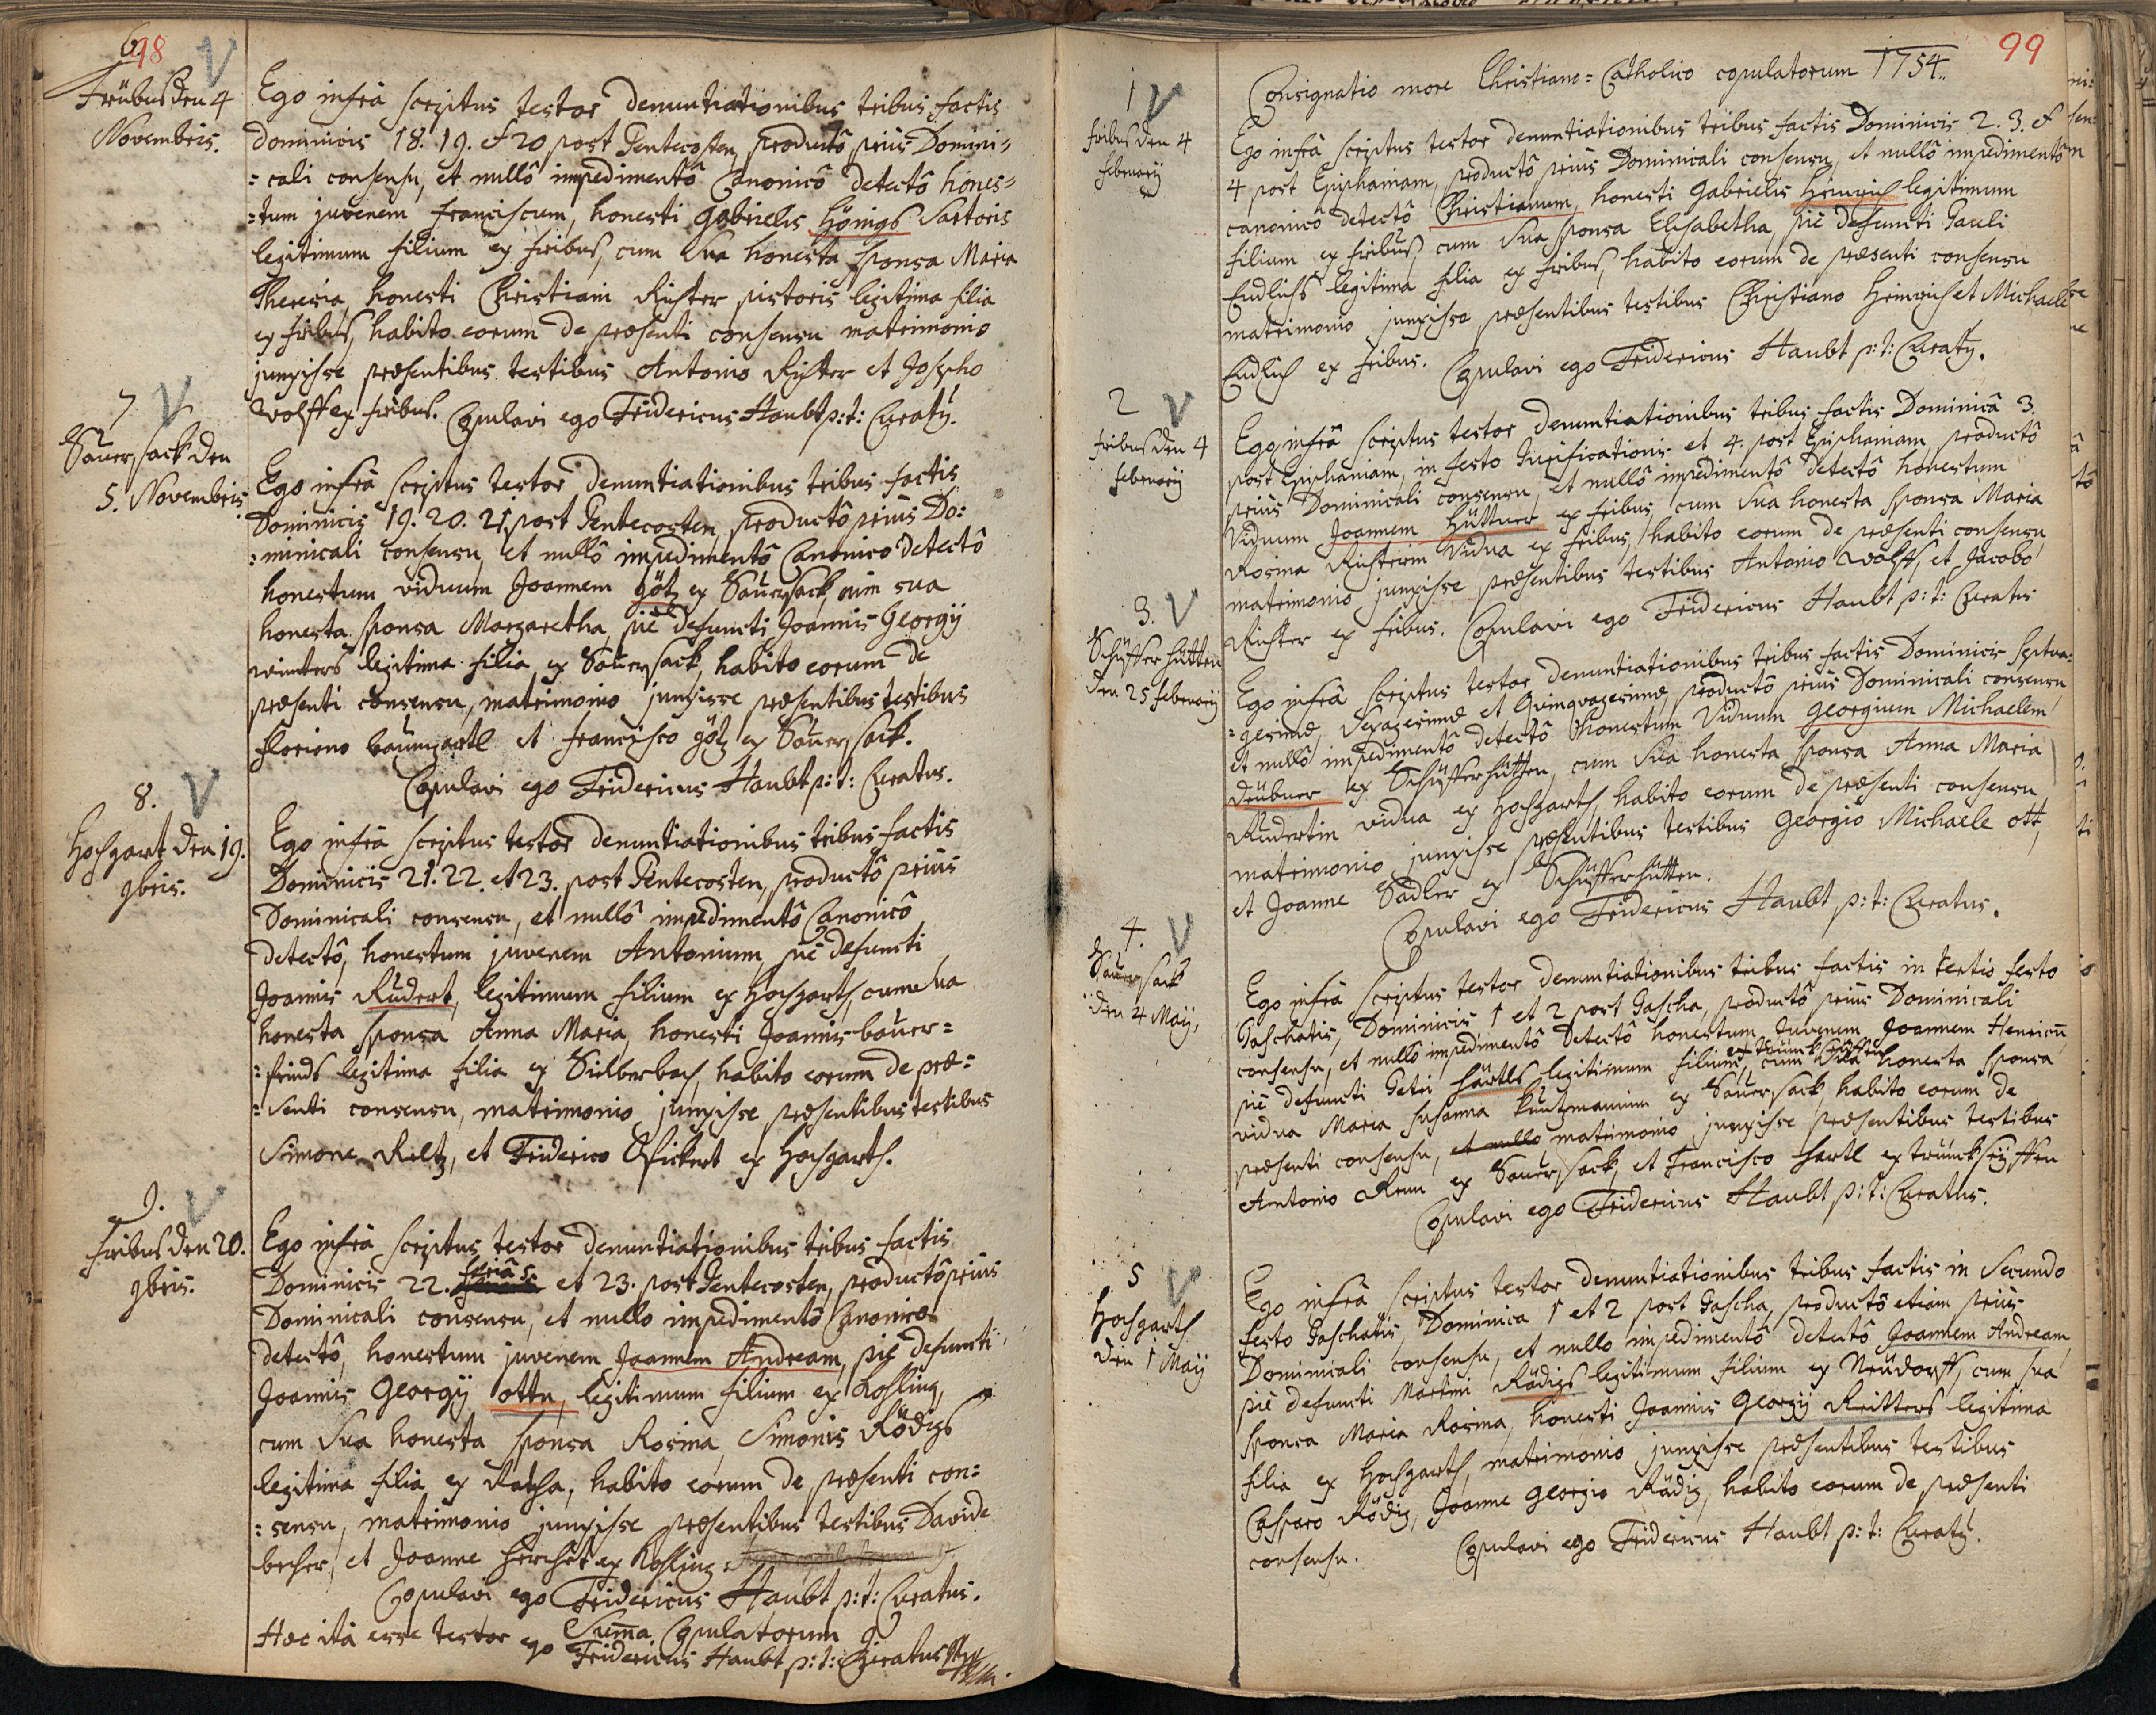 98
6.
Fribus den 4
Novembris.
Ego infrà scriptus testor denuntiationibus tribus factis
Dominicis 18. 19. et 20 post Pentecosten, productô priùs Domini=
=cali consensu, et nullô impedimentô Canonicô detectô hones=
=tum juvenem Franciscum, honesti Gabrielis Hönigs Sartoris
legitimum filium ex Fribus, cum sua honesta sponsa Maria
Theresia, honesti Christiani Richter pistoris legitima filia
ex Fribus, habito eorum de præsenti consensu matrimonio
junxisse præsentibus testibus Antonio Richter et Josepho
Wolff ex Fribus. Copulavi ego Fridericus Haubt p:t: Curatq.
7
Sauersack den
5. Novembris
Ego infrà scriptus testor denuntiationibus tribus factis
Dominicis 19. 20. 21 post Pentecosten, productô priùs Do:
:minicali consensu, et nullô impedimentô Canonico detectô
honestum viduum Joannem Götz ex Sauersack cum sua
honesta sponsa Margaretha, piè defuncti Joannis Georgij
winters legitima filia ex Sauersack, habito eorum de
præsenti consensu, matrimonio junxisse præsentibus testibus
Floriano baumgartl et Francisco götz ex Sauersack.
Copulavi ego Fridericus Haubt p:t: Curatus.
8.
Hochgart den 19.
9bris.
Ego infrà scriptus testor denuntiationibus tribus factis
Dominicis 21. 22. et 23. post Pentecosten, productô priùs
Dominicali consensu, et nullô impedimentô Canonicô
detectô, honestum juvenem Antonium, piè defuncti
Joannis Rudert, legitimum filium ex Hochgarth, cum sua
honesta sponsa Anna Maria, honesti Joannis bauer=
=feinds legitima filia ex Silberbach, habito eorum de præ=
=senti consensu, matrimonio junxisse præsentibus testibus
Simone Reltz, et Friderico Pickert ex Hochgarth.
9.
Fribus den 20.
9bris.
Ego infrà scriptus testor denuntiationibus tribus factis
feriâ 5.
Dominicis 22. et 23. post Pentecosten, productô priùs
Dominicali consensu, et nullo impedimentô Canonico
detectô, honestum juvenem Joannem Andream, piè defuncti
Joannis Georgij otto, legitimum filium ex Kohling,
cum sua honesta sponsa Rosina Simonis Rödigs
legitima filia ex Katzha, habito eorum de præsenti con=
:sensu, matrimonio junxisse præsentibus testibus Davide
becher, et Joanne ex Kohling.
Copulavi ego Fridericus Haubt p:t: Curatus.
Suma Copulatorum 9
Hæc ità esse testor ego Fridericus Haubt p:t: Curatus
99
Consignatio more Christiano=Catholico copulatorum 1754..
1
Fribus den 4
February
Ego infrà scriptus testor denuntiationibus tribus factis Dominicis 2. 3. et
4 post Epiphaniam, productô priùs Dominicali consensu, et nullô impedimentô
canonicô detectô Christianum, honesti Gabrielis Heinrich legitimum
filium ex Fribus, cum sua sponsa Elisabetha, piè defuncti Pauli
Endlichs legitima filia ex Fribus, habito eorum de præsenti consensu
matrimonio junxisse præsentibus testibus Christiano Heinrich et Michaele
Endlich ex Fribus. Copulavi ego Fridericus Haubt p:t: Curatq.
2
Fribus den 4
February
Ego infrà scriptus testor denuntiationibus tribus factis Dominicâ 3.
post Epiphaniam, in festo Purificationis et 4. post Epiphaniam productô
priùs Dominicali consensu, et nullô impedimentô detectô honestum
Viduum Joannem Hüttner ex Fribus cum sua honesta sponsa Maria
Rosina Richterin Vidua ex Fribus, habito eorum de præsenti consensu
matrimonio junxisse præsentibus testibus Antonio Wolff, et Jacobo
Richter ex Fribus. Copulavi ego Fridericus Haubt p:t: Curatus
3.
Schifferhütten
den 25 February
Ego infrà scriptus testor denuntiationibus tribus factis Dominicis Septua:
:gesimæ, Sexagesimæ et Qvinqvagesimæ, productô priùs Dominicali consensu
et nullô impedimentô detectô honestum Viduum Georgium Michaelem
Drübner ex Schifferhütten, cum sua honesta sponsa Anna Maria
Rudertin vidua ex Hochgarth, habito eorum de præsenti consensu
matrimonio junxisse præsentibus testibus Georgio Michaele ott,
et Joanne Sadler ex Schifferhütten.
Copulavi ego Fridericus Haubt p:t: Curatus.
4.
Sauersack
den 4 May,
Ego infrà scriptus testor denuntiationibus tribus factis in tertio festo
Paschatis, Dominicis 1 et 2 post Pascha, productô priùs Dominicali
consensu, et nullô impedimentô detectô honestum Juvenem Joannem Henricū
ex trinckseiffen
piè defuncti Petri Härtls legitimum filium, cum sua honesta sponsa
vidua Maria Susanna Kuntzmannin ex Sauersack, habito eorum de
præsenti consensu, et nullo matrimonio junxisse præsentibus testibus
Antonio Kern ex Sauersack, et Francisco Hartl ex trinckseiffen
Copulavi ego Fridericus Haubt p:t: Curatus.
5
Hochgarth
den 1 Maij
Ego infrà scriptus testor denuntiationibus tribus factis in secundo
festo Paschatis, Dominica 1 et 2 post Pascha, productô etiam priùs
Dominicali consensu, et nullo impedimentô detectô Joannem Andream
piè defuncti Martini Rödigs legitimum filium ex Neudorff, cum sua
sponsa Maria Rosina, honesti Joannis Georgij Reitters legitima
filia ex Hochgarth, matrimonio junxisse præsentibus testibus
Casparo Rödig, Joanne Georgio Rädig, habito eorum de præsenti
consensu. Copulavi ego Fridericus Haubt p:t: Curatq.